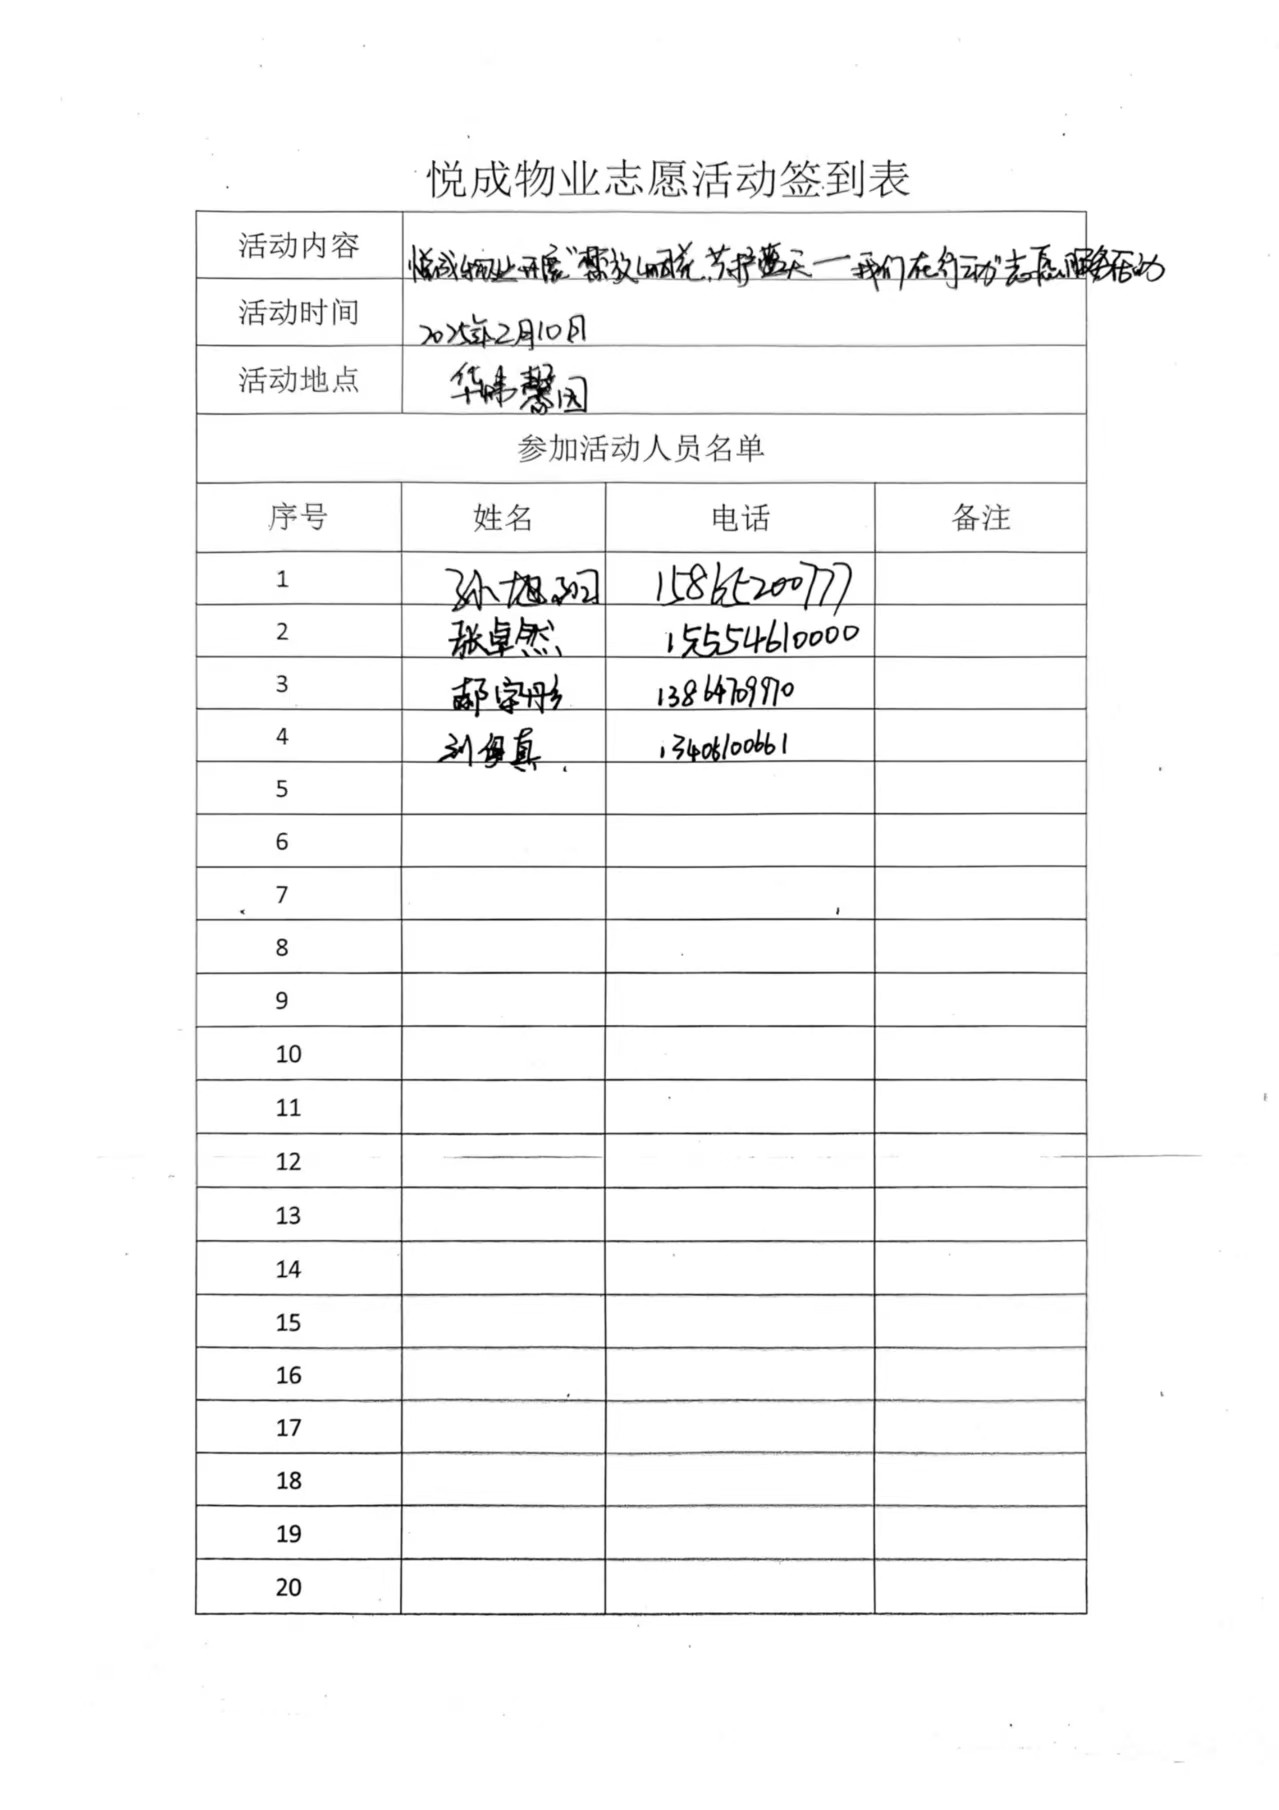 悦成物业志愿活动签到表
活动内容 悦成物业开展“禁放烟花,共护蓝天——我们在行动”志愿服务活动
活动时间 2025年2月10日
活动地点 华炜馨园
参加活动人员名单
序号 姓名 电话 备注
1 孙旭 15865200777
2 张卓然 15554610000
3 郝字彤 13864709970
4 刘 真 13406100661
5
6
7
8
9
10
11
12
13
14
15
16
17
18
19
20